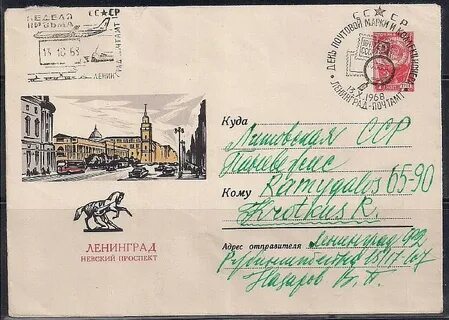 СССР
НЕДЕЛЯ
ПИСЬМА
13 10 68
ЛЕНИНГРАД ПОЧТАМТ
СССР
ДЕНЬ ПОЧТОВОЙ МАРКИ И КОЛЛЕКЦИОНЕРА
13.X.1968
ЛЕНИНГРАД-ПОЧТАМТ
Куда
Литовская ССР
Паневежис
Кому
Ramygalos 65-90
Krotkus R.
ЛЕНИНГРАД
НЕВСКИЙ ПРОСПЕКТ
Адрес отправителя
Ленинград
Назаров В. П.